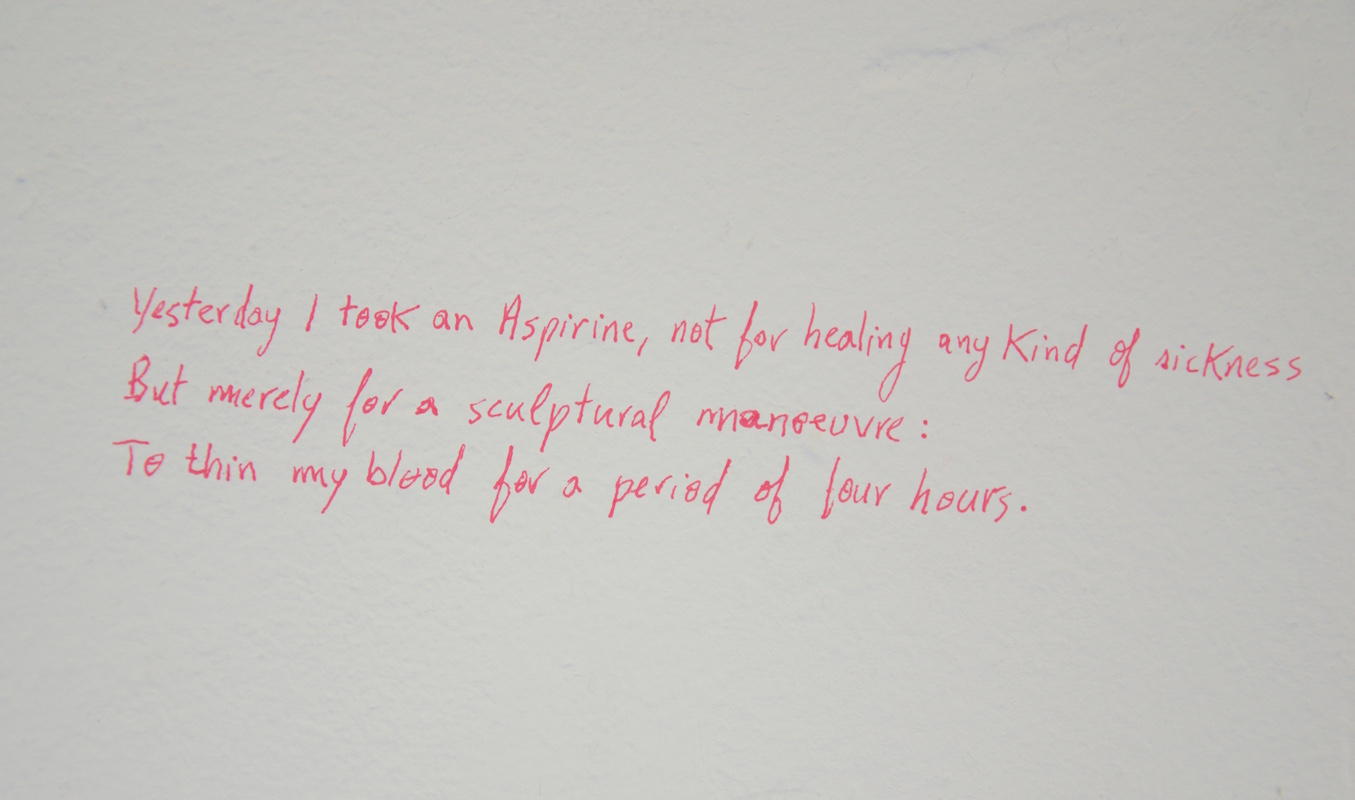 Yesterday I took an Aspirine, not for healing any Kind of sickness
But merely for a sculptural manoeuvre:
To thin my blood for a period of four hours.